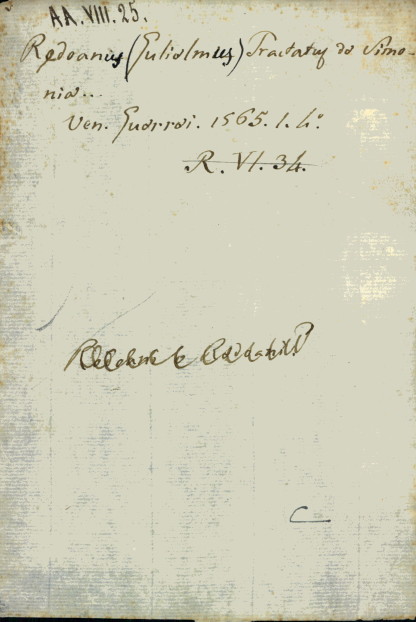 AA.VIII.25.
Redoanus (Gulielmus) Tractatus de Simo-
nia...
Ven. Guerrei. 1565. 1. 4°.
R. VI. 34.
C